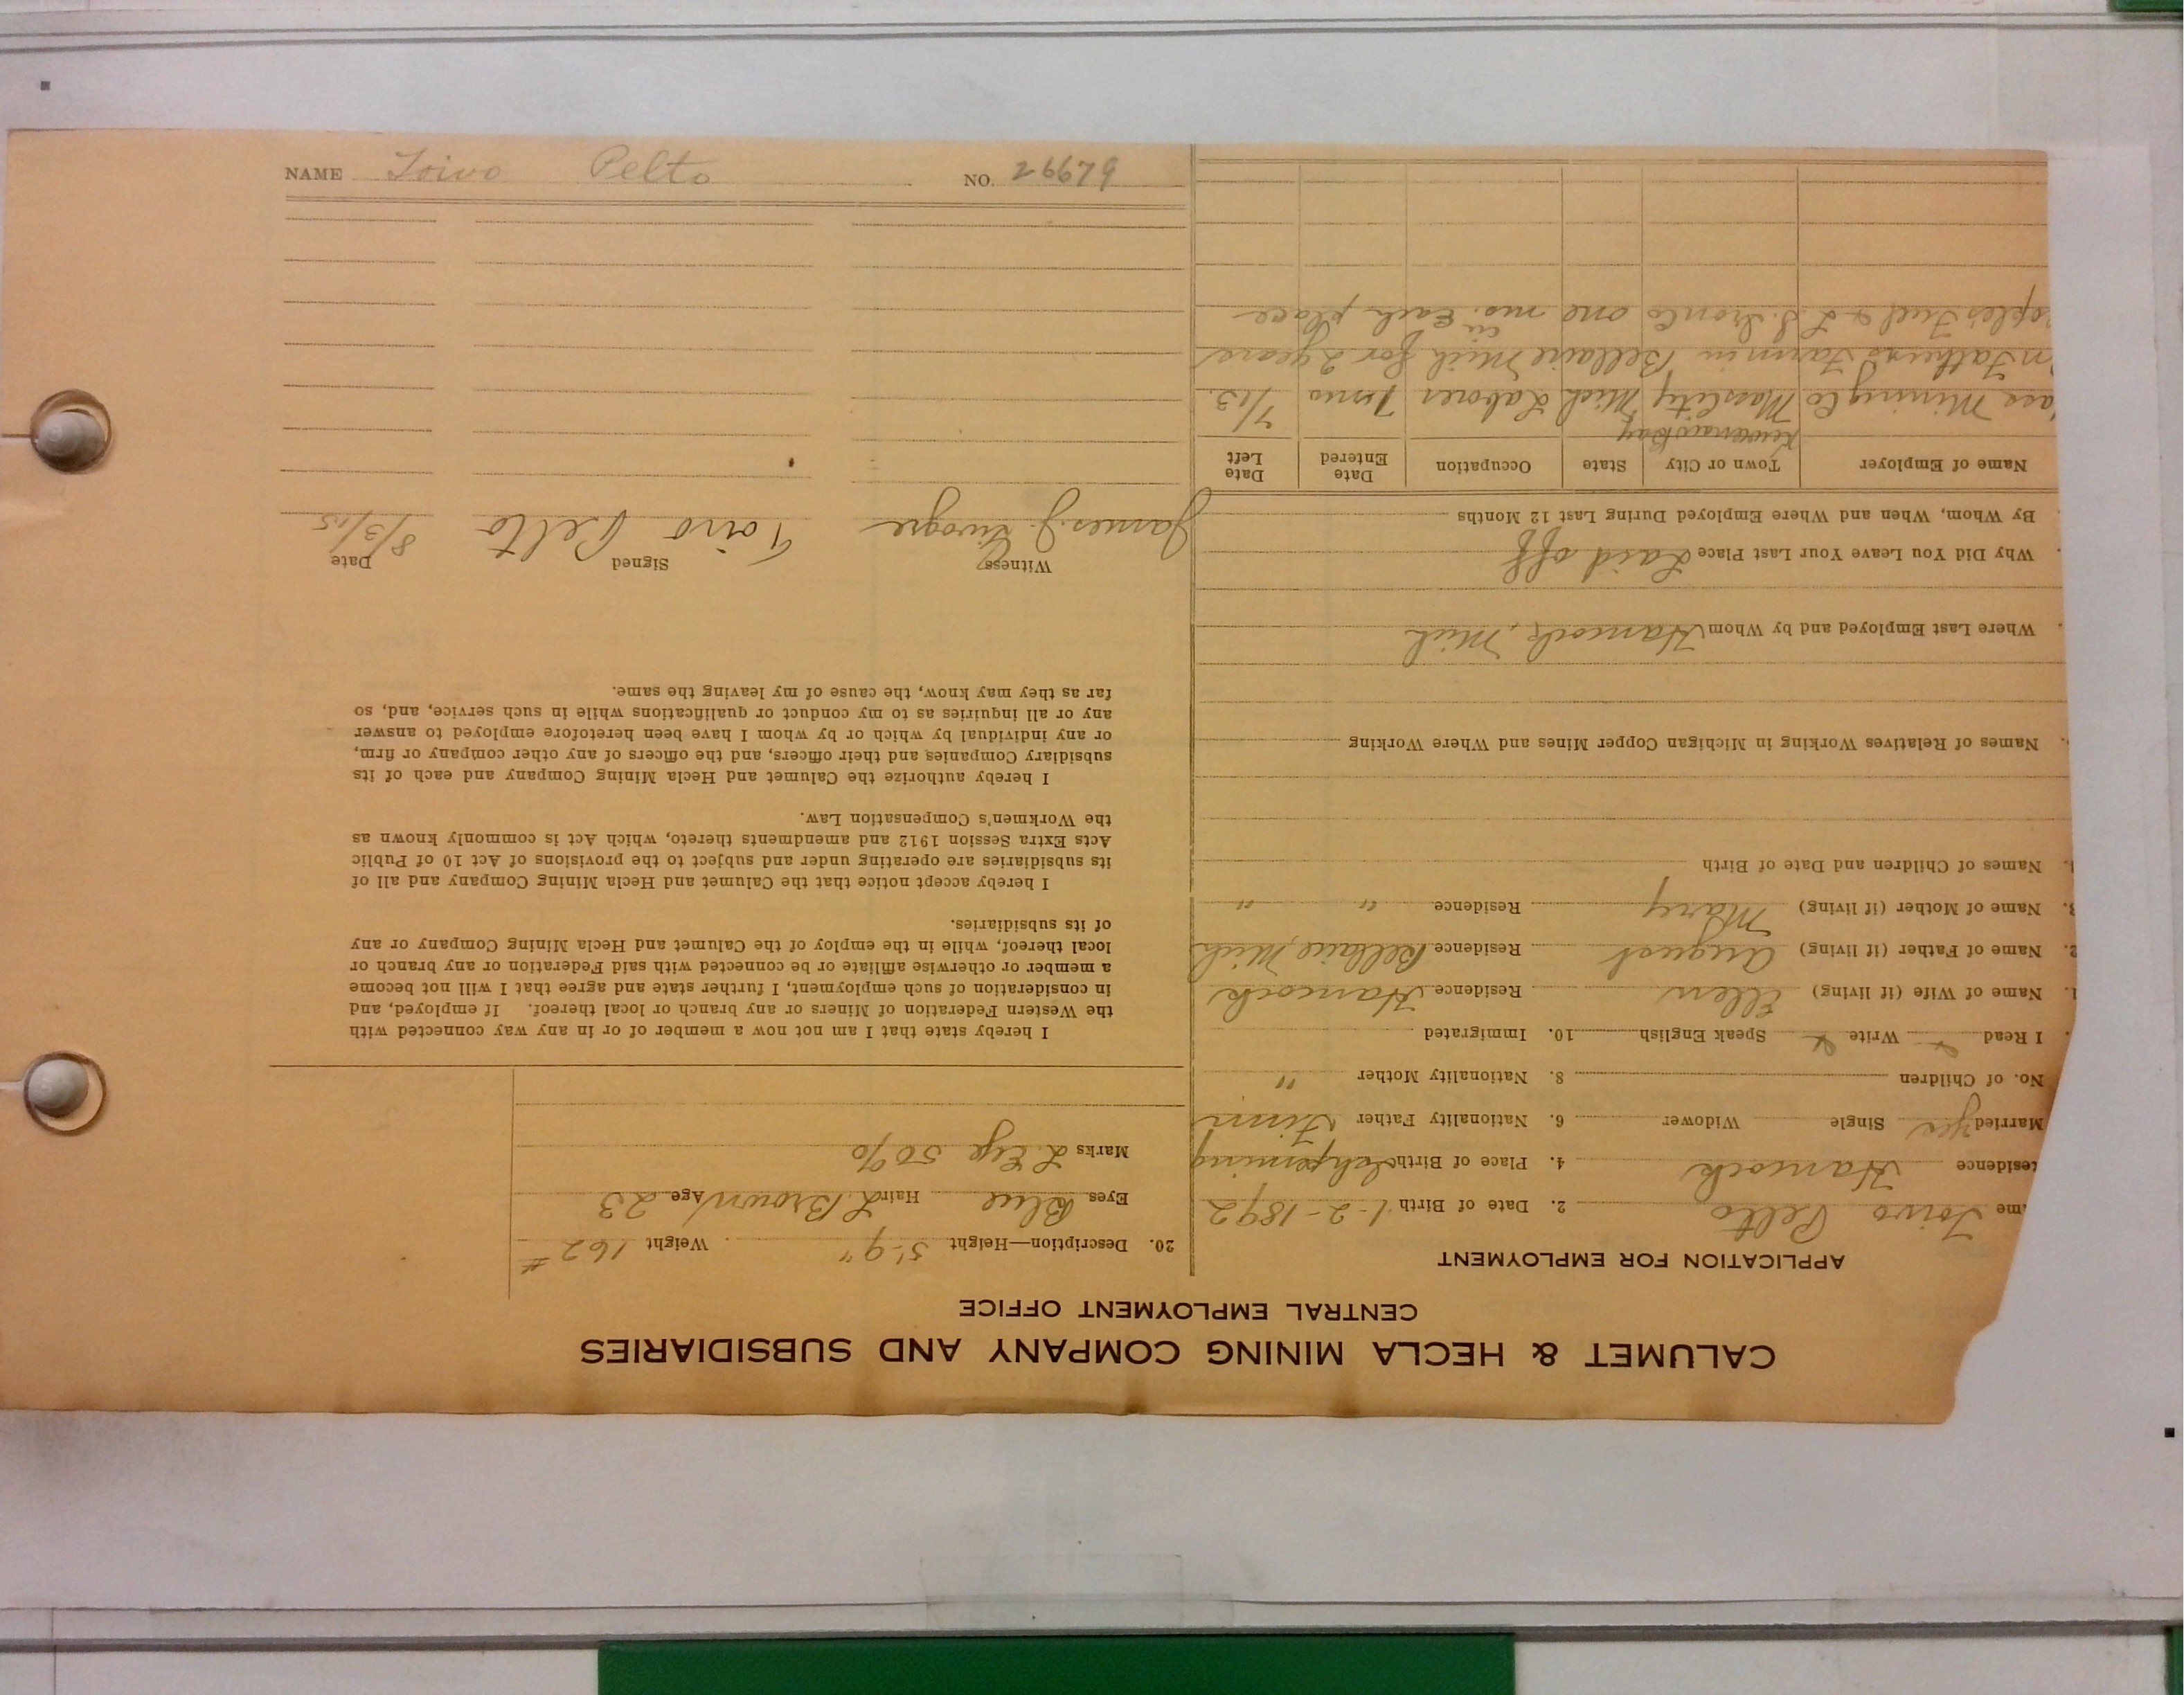 CALUMET & HECLA MINING COMPANY AND SUBSIDIARIES
CENTRAL EMPLOYMENT OFFICE
APPLICATION FOR EMPLOYMENT
me Toivo Pelto 2. Date of Birth 1-2-1892
esidence Hancock 4. Place of Birth Ishpeming
Married yes Single Widower 6. Nationality Father Finn
No. of Children 8. Nationality Mother "
I Read Write Speak English 10. Immigrated
1. Name of Wife (if living) Ellen Residence Hancock
2. Name of Father (if living) August Residence Bellaire, Mich
3. Name of Mother (if living) Mary Residence " "
4. Names of Children and Date of Birth
Names of Relatives Working in Michigan Copper Mines and Where Working
Where Last Employed and by Whom Hancock, Mich
Why Did You Leave Your Last Place Laid off
By Whom, When and Where Employed During Last 12 Months
Name of Employer Town or City State Occupation Date Entered Date Left
Keweenaw Bay
ass Mining Co Mass City Mich Laborer 7 mo 7/13
n Fathers Farm in Bellaire Mich for 2 years
oples Fuel & L. S. Iron Co one mo. in Each place
20. Description—Height 5'-9" Weight 162 #
Eyes Blue Hair L Brown Age 23
Marks L Eye 50%
I hereby state that I am not now a member of or in any way connected with
the Western Federation of Miners or any branch or local thereof. If employed, and
in consideration of such employment, I further state and agree that I will not become
a member or otherwise affiliate or be connected with said Federation or any branch or
local thereof, while in the employ of the Calumet and Hecla Mining Company or any
of its subsidiaries.
I hereby accept notice that the Calumet and Hecla Mining Company and all of
its subsidiaries are operating under and subject to the provisions of Act 10 of Public
Acts Extra Session 1912 and amendments thereto, which Act is commonly known as
the Workmen's Compensation Law.
I hereby authorize the Calumet and Hecla Mining Company and each of its
subsidiary Companies and their officers, and the officers of any other company or firm,
or any individual by which or by whom I have been heretofore employed to answer
any or all inquiries as to my conduct or qualifications while in such service, and, so
far as they may know, the cause of my leaving the same.
Witness Signed Date
James J. Toivo Pelto 8/3/15
NAME Toivo Pelto NO. 26679